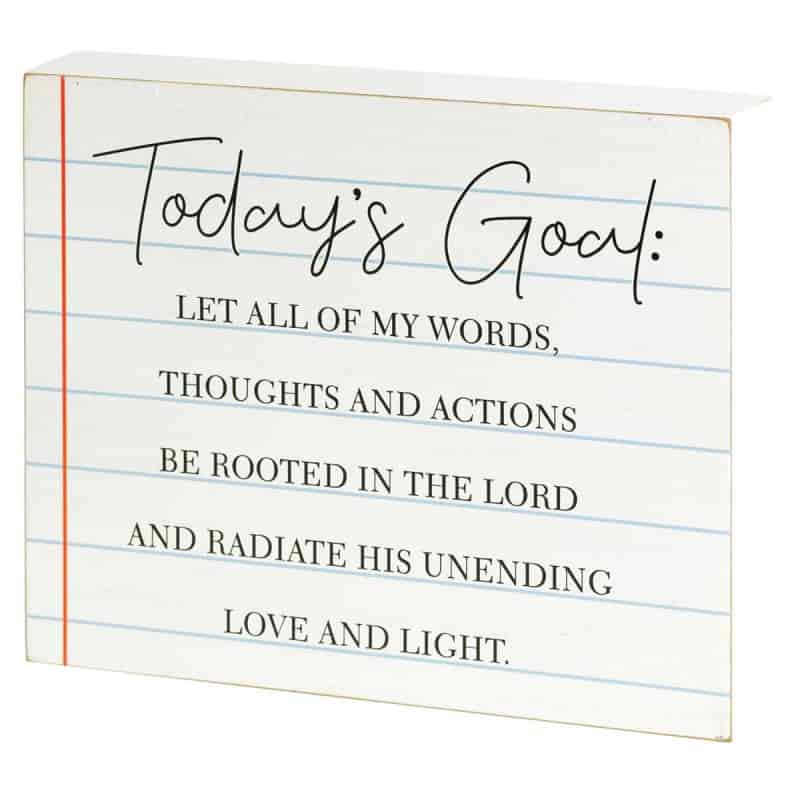 Today's Goal:
LET ALL OF MY WORDS,
THOUGHTS AND ACTIONS
BE ROOTED IN THE LORD
AND RADIATE HIS UNENDING
LOVE AND LIGHT.